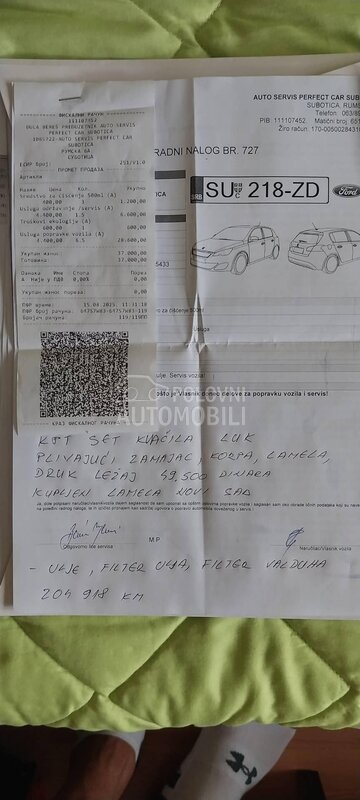 ФИСКАЛНИ РАЧУН
111107452
PERFECT CAR SUBOTICA
1065722-AUTO SERVIS PERFECT CAR
SUBOTICA
РУМСКА 6А
СУБОТИЦА
ЕСИР број: 253/V1.0
ПРОМЕТ ПРОДАЈА
Артикли
Назив Цена Кол. Укупно
Sredstvo za čišćenje 500ml (А)
400,00 1.200,00
Usluga održavanje /servis (А)
4.400,00 1.5 6.600,00
Troškovi ekologije (А)
600,00 1 600,00
Usluga popravka vozila (А)
4.400,00 6.5 28.600,00
Укупан износ: 37.000,00
Готовина: 37.000,00
0,00
Укупан износ пореза: 0,00
ПФР време: 15.08.2025 11:31:18
ПФР број рачуна:
Бројач рачуна:
КРАЈ ФИСКАЛНОГ РАЧУНА
AUTO SERVIS PERFECT CAR SUB
SUBOTICA, RUMS
Telefon: 063/8
PIB: 111107452, Matični broj: 65
Žiro račun: 170-0050028434
RADNI NALOG BR. 727
SRB SU 218-ZD
Ford
5433
za čišćenje 500ml
Usluga
ulje. Servis vozila
pošto je Vlasnik doneo delove za popravku vozila i servis!
POLOVNI
AUTOMOBILI
KIT SET KVAČILA LUK
PLIVAJUĆI ZAMAJAC, KORPA, LAMELA,
DRUK LEŽAJ 49.500 DINARA
KUPLJENI LAMELA NOVI SAD
Odgovorno lice servisa
M.P.
Naručilac/Vlasnik vozila
- ULJE, FILTER ULJA, FILTER VAZDUHA
204 918 KM